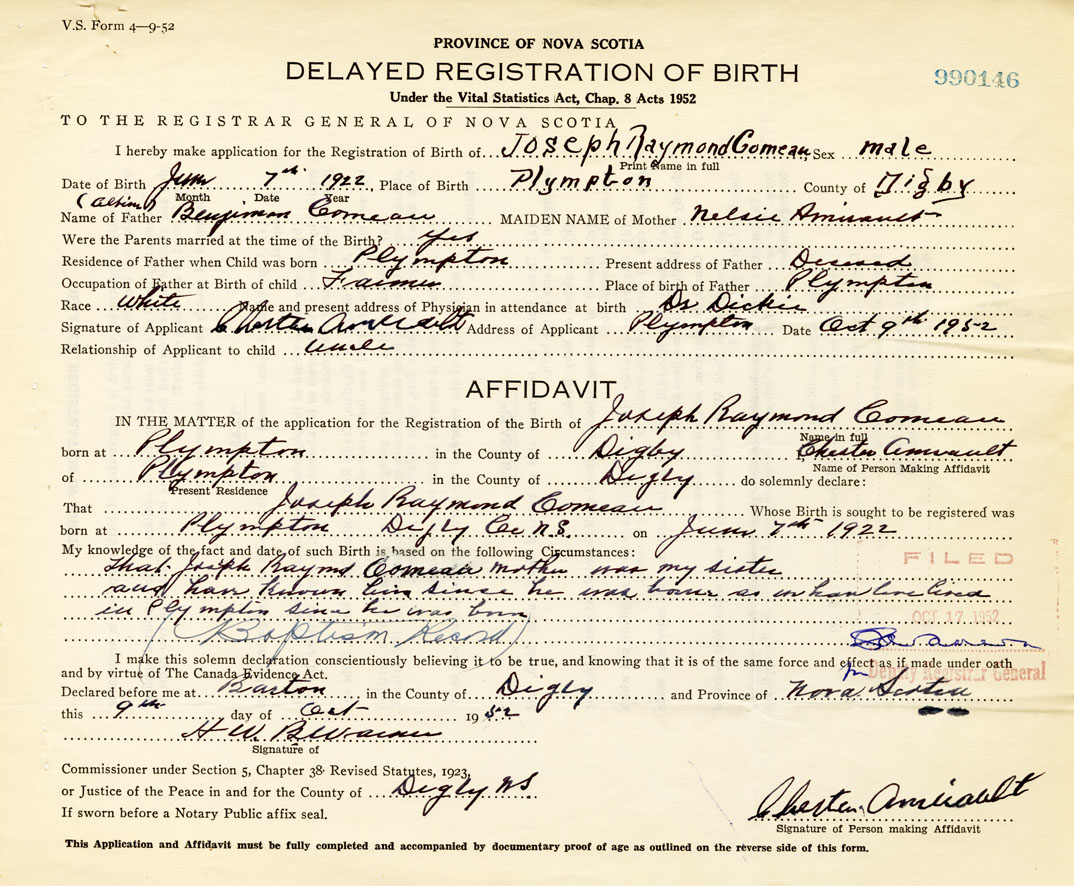 V.S. Form 4—9-52
PROVINCE OF NOVA SCOTIA
DELAYED REGISTRATION OF BIRTH
990146
Under the Vital Statistics Act, Chap. 8 Acts 1952
TO THE REGISTRAR GENERAL OF NOVA SCOTIA
I hereby make application for the Registration of Birth of Joseph Raymond Comeau Sex male
Print Name in full
Date of Birth June 7th 1922, Place of Birth Plympton County of Digby
Month Date Year
Name of Father Benjiman Comeau MAIDEN NAME of Mother Nelsie Amirault
Were the Parents married at the time of the Birth? Yes
Residence of Father when Child was born Plympton Present address of Father Decesed
Occupation of Father at Birth of child Farmer Place of birth of Father Plympton
Race White Name and present address of Physician in attendance at birth Dr Dickie
Signature of Applicant Chester Amirault Address of Applicant Plympton Date Oct 9th 1952
Relationship of Applicant to child Uncle
AFFIDAVIT
IN THE MATTER of the application for the Registration of the Birth of Joseph Raymond Comeau
Name in full
born at Plympton in the County of Digby Chester Amirault
Name of Person Making Affidavit
of Plympton in the County of Digby do solemnly declare:
Present Residence
That Joseph Raymond Comeau Whose Birth is sought to be registered was
born at Plympton Digby Co N.S. on June 7th 1922
My knowledge of the fact and date of such Birth is based on the following Circumstances:
That Joseph Raymd Comeau mother was my sister
and have known him since he was borne as we have lived
in Plympton since he was born
(Baptism Record)
FILED
OCT 17 1952
I make this solemn declaration conscientiously believing it to be true, and knowing that it is of the same force and effect as if made under oath
and by virtue of The Canada Evidence Act.
for Deputy Registrar General
Declared before me at Barton in the County of Digby and Province of Nova Scotia
this 9th day of Oct 1952
H W.
Signature of
Commissioner under Section 5, Chapter 38 Revised Statutes, 1923,
or Justice of the Peace in and for the County of Digby NS.
If sworn before a Notary Public affix seal.
Chester Amirault
Signature of Person making Affidavit
This Application and Affidavit must be fully completed and accompanied by documentary proof of age as outlined on the reverse side of this form.